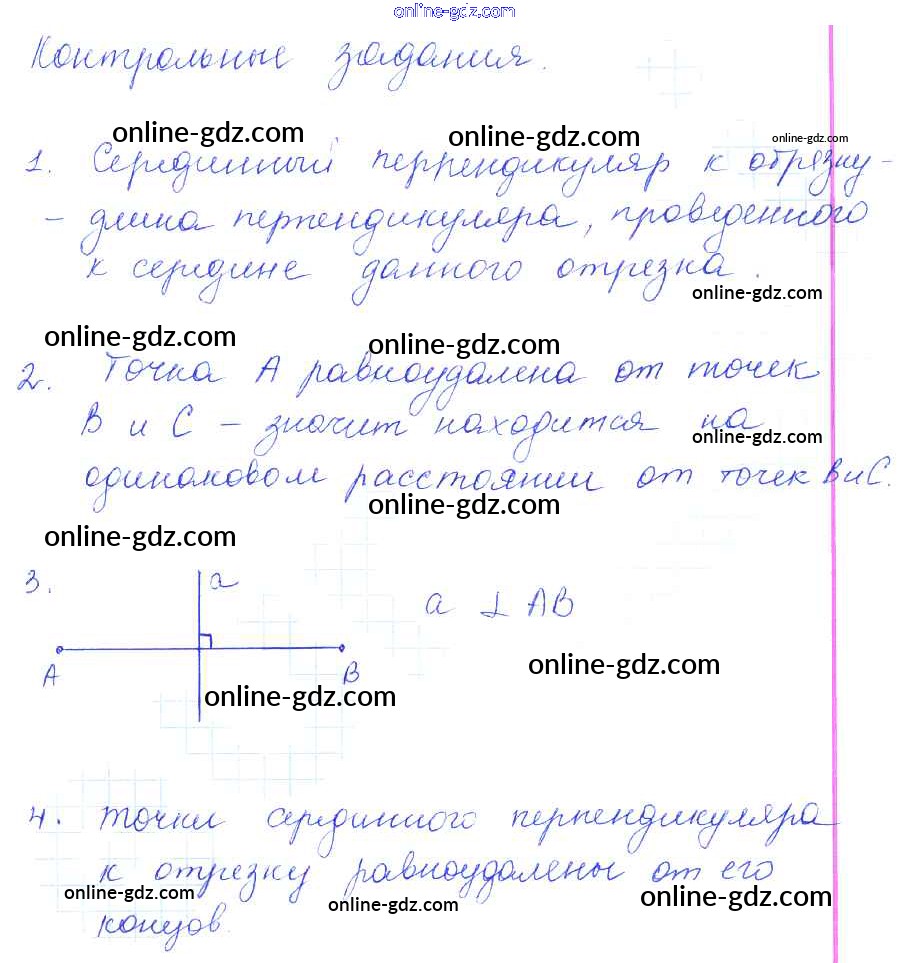 online-gdz.com
Контрольные задания.
online-gdz.com online-gdz.com online-gdz.com
1. Серединный перпендикуляр к отрезку -
- длина перпендикуляра, проведенного
к середине данного отрезка.
online-gdz.com
online-gdz.com online-gdz.com
2. Точка А равноудалена от точек
В и С - значит находится на
online-gdz.com
одинаковом расстоянии от точек В и С.
online-gdz.com
online-gdz.com
3. a
a ⊥ AB
A B
online-gdz.com
online-gdz.com
4. Точки серединного перпендикуляра
к отрезку равноудалены от его
online-gdz.com online-gdz.com online-gdz.com
концов.